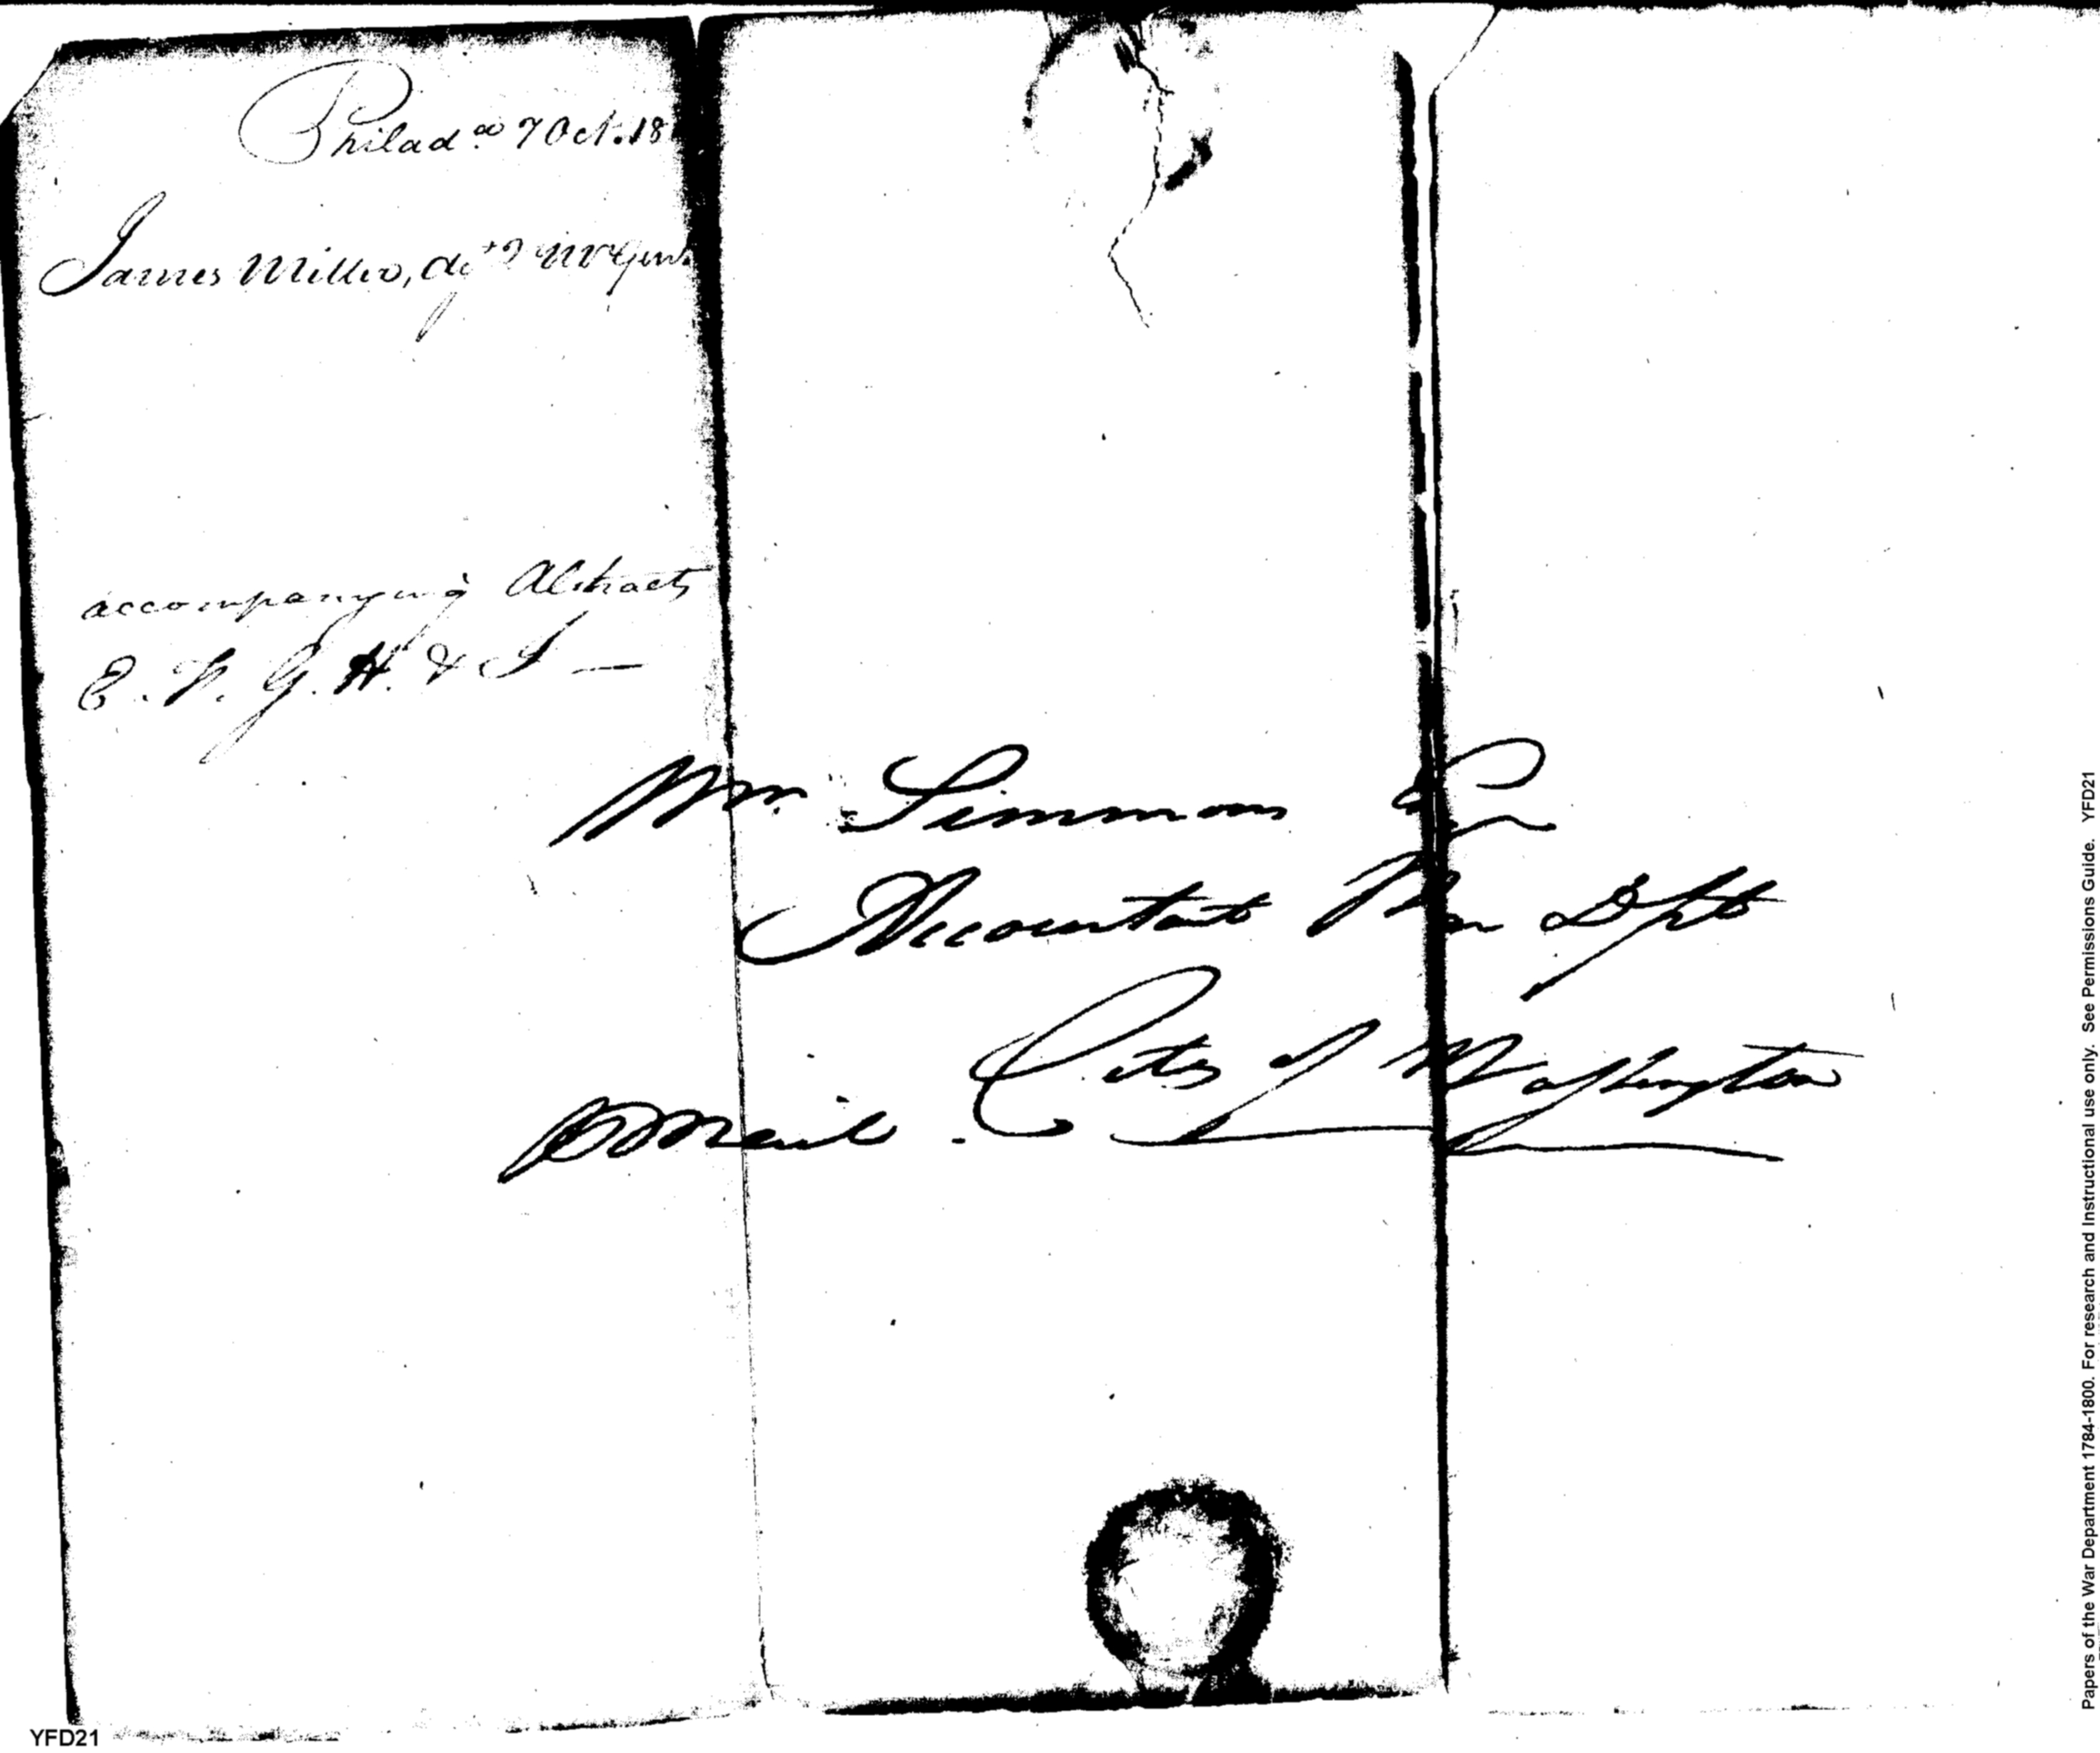 Philad.a 7 Oct. 18
James Miller, dy t Q Mr Genl.
accompanying Abstracts
E. F. G. H. & I —
Wm Simmons Esqr
Accountant War Dpt
City of Washington
Mail.
YFD21
Papers of the War Department 1784-1800. For research and Instructional use only. See Permissions Guide. YFD21